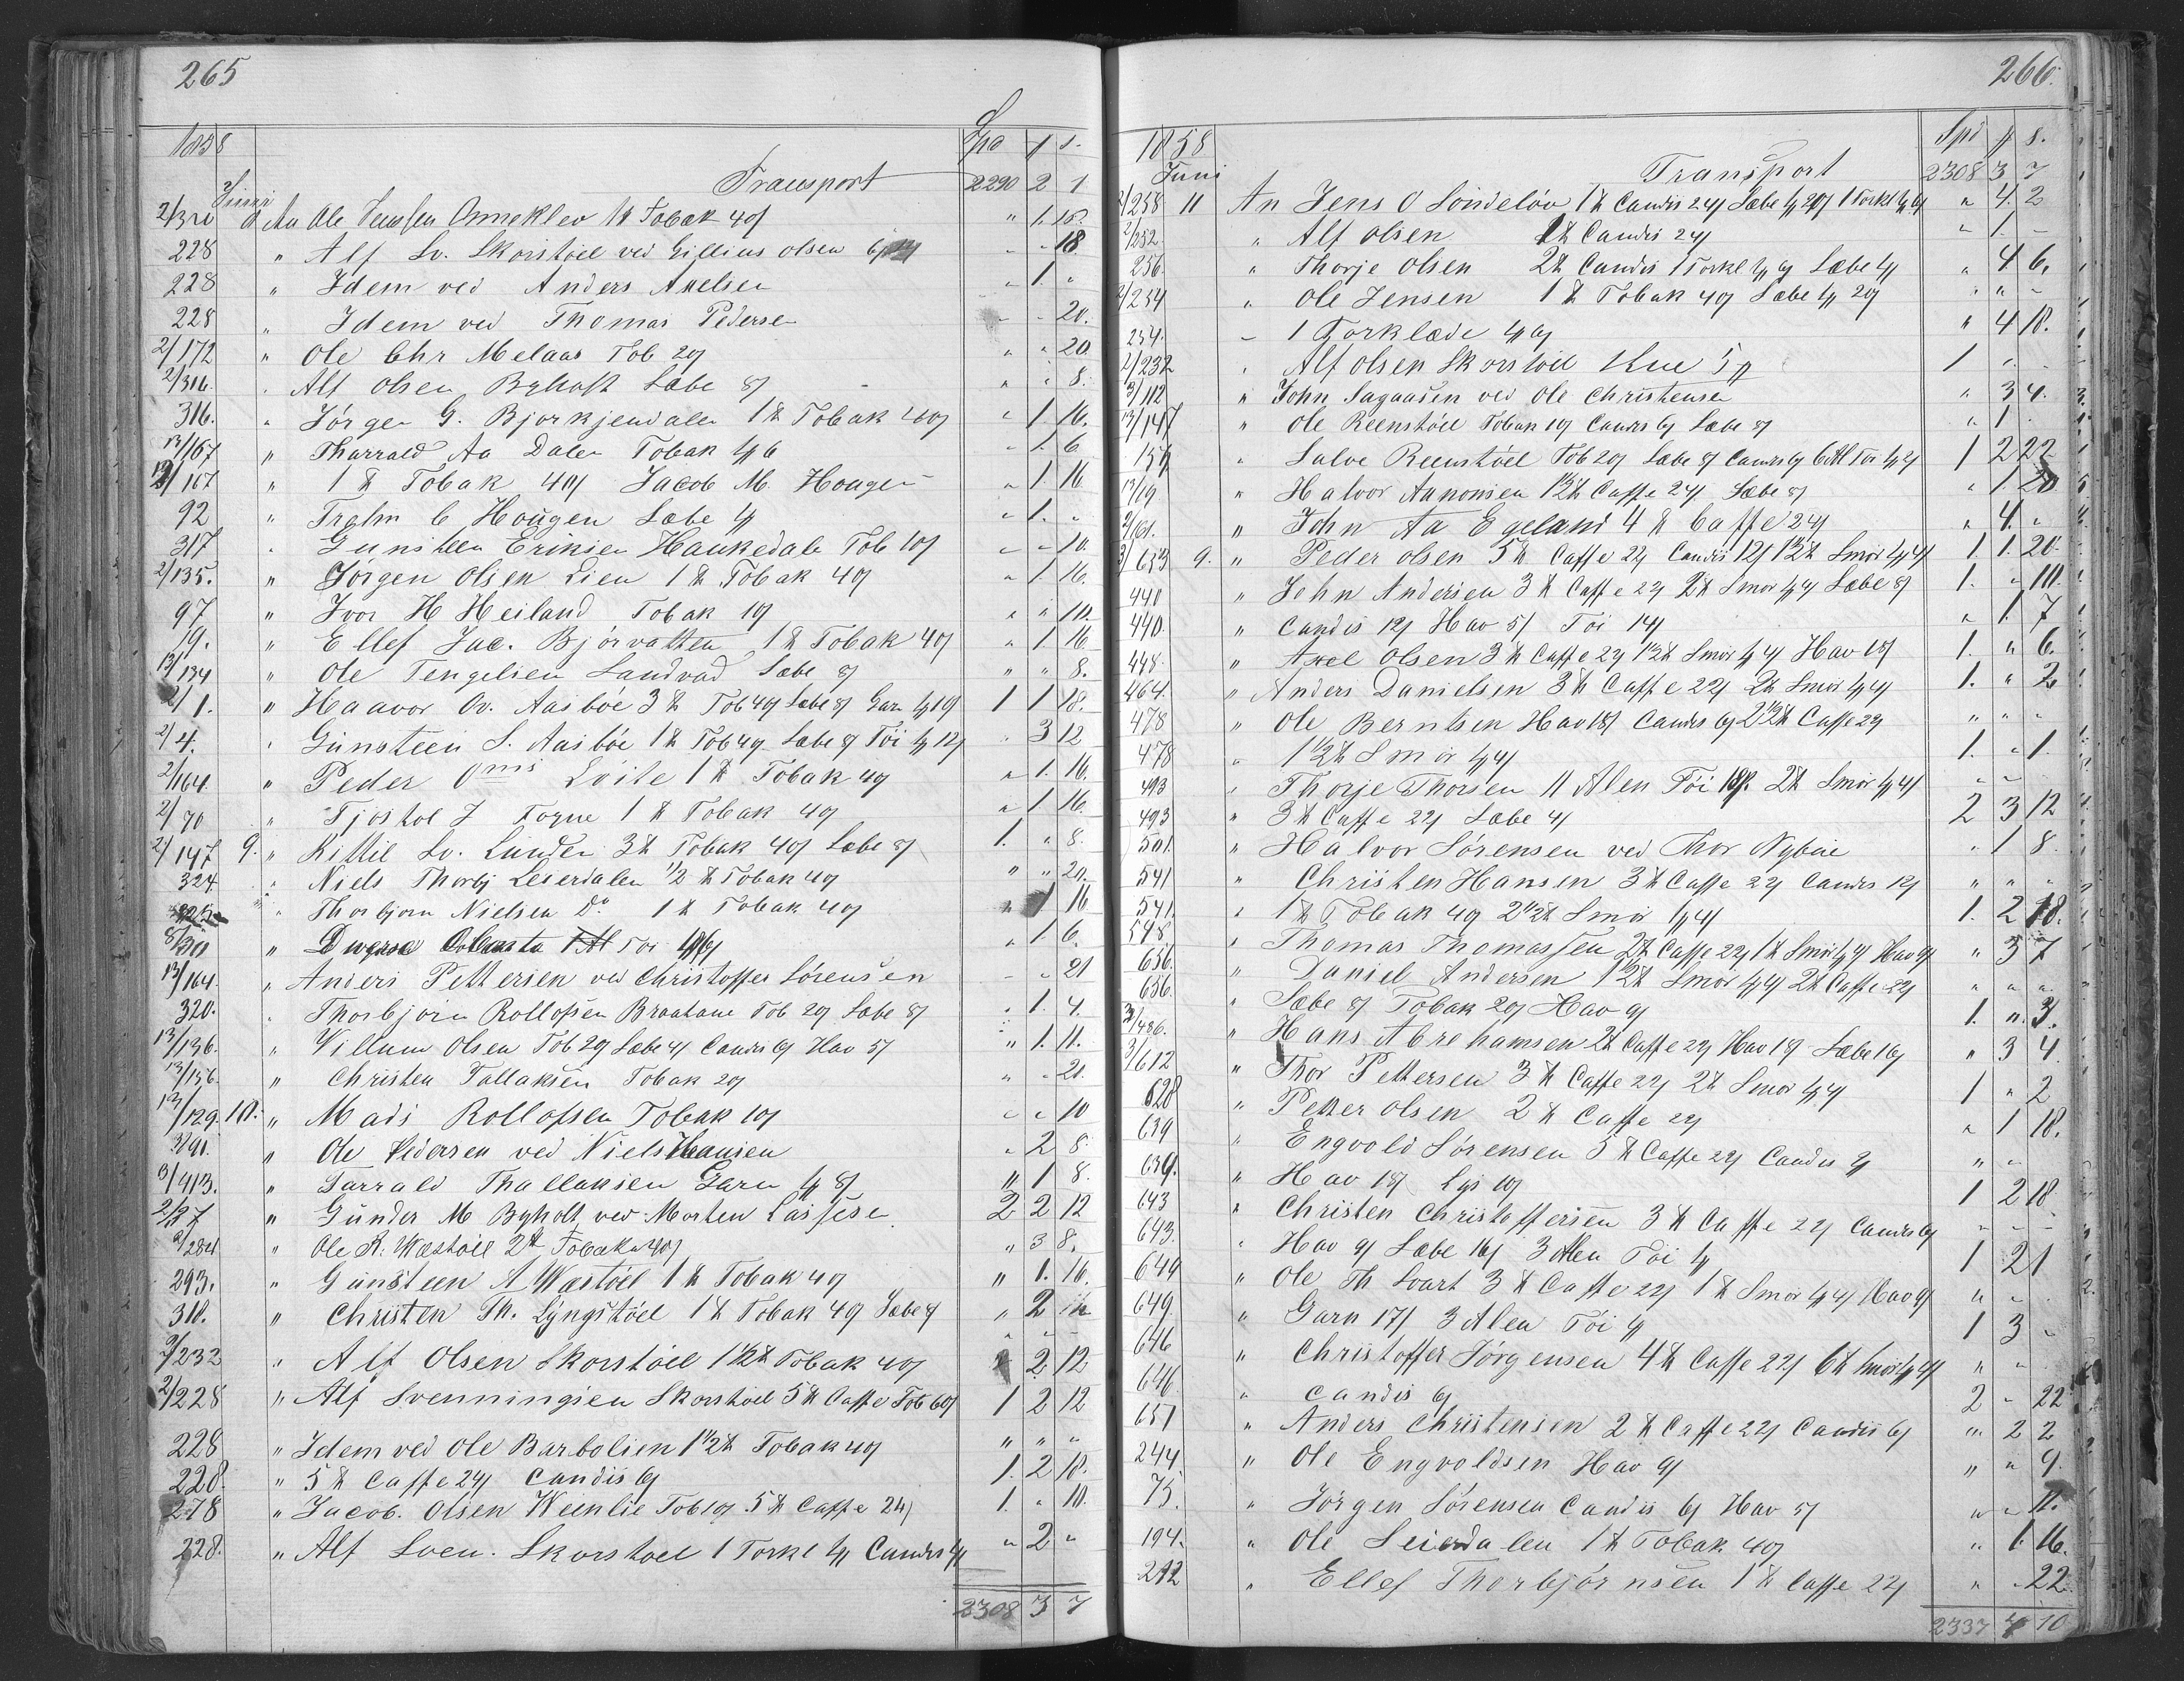 265
1858 Spd
Juni Transport 2290 2 1
2/320 An Ole Omeklev 1 ℔ Tobak 40/ " 1. 16.
228 " Alf Sv. Skorstöel ved Gillius Olsen " " 18
228 " Idem ved Anders Axelsen " 1. "
228 " Idem ved Thomas Pedersen " " 20.
2/172 " Ole Chr Melaas Tob 20/ " " 20.
2/316. " Alf Olsen Bÿholt Sæbe 8/ " " 8.
316. " Jörgen G. Bjorkjendalen 1 ℔ Tobak 40/ " 1. 16.
13/167 " Tharrald Aa Dalen Tobak " 1. 6.
13/167 " 1 ℔ Tobak 40/ Jacob M. Hougen " 1. 16
92 " C Hougen Sæbe " 1. "
317 " Gunsteen Eriksen Haukedale Tob 10/ " " 10.
2/135. " Jörgen Olsen Lien 1 ℔ Tobak 40/ " 1. 16.
97 " Ivor H Heiland Tobak 10/ " " 10.
19. " Ellef Jac. Bjorvatten 1 ℔ Tobak 40/ " 1 16
13/134 " Ole Tengelsen Landvad Sæbe 8/ " " 8.
2/1. " Haavor Ov. Aasböe 3 ℔ Tob 40/ Sæbe 8/ Garn 1 1 18.
2/4. " Günsteen S. Aasböe 1 ℔ Tob 40/ Sæbe 8/ Töi " 3 12
2/164 " Peder Löite 1 ℔ Tobak 40/ " 1. 16.
2/70 " Tjostol J 1 ℔ Tobak 40/ " 1 16.
2/147 9. " Kittil Sv. Lunden 3 ℔ Tobak 40/ Sæbe 8/ 1. " 8.
324 " Niels Thorbj Leserdalen 1/2 ℔ Tobak 40/ " " 20.
" Thorbjorn Nielsen Do 1 ℔ Tobak 40/ " 1 16
" Diverse Töi " 1 6.
13/164. " Anders Pettersen ved Christoffer Sörensen " " 21
320. " Thorbjorn Rollofsen Braatane Tob 20/ Sæbe 8/ " 1. 4.
13/136. " Villum Olsen Tob 20/ Sæbe 4/ Candis 6/ Hav 5/ " 1. 11.
13/156. " Christen Tallaksen Tobak 20/ " " 20.
13/129. 10. " Mads Rollofsen Tobak 10/ " " 10
3/91. " Ole Pedersen ved Niels Hansen " 2 8.
3/413. " Tarrald Thallaksen Garn " 1 8.
2/27 " Günder M Byholt ved Morten 2 2 12
2/284 " Ole R. Wæstöel 2 ℔ Tobak 40/ " 3 8.
293. " Günsteen A Wæstöel 1 ℔ Tobak 40/ " 1. 16.
310. " Christen Th. Lÿngstöel 1 ℔ Tobak 40/ Sæbe 8/ " 2
2/232 " Alf Olsen Skorstöel 1 1/2 ℔ Tobak 40/ " 2 12
2/228 " Alf Svenningsen Skorstöel 5 ℔ Caffe Tob 60/ 1 2 12
228 " Idem ved Ole Barbolsen 1 1/2 ℔ Tobak 40/ " " "
228. " 5 ℔ Caffe 24/ Candis 6/ 1. 2 18.
278 " Jacob. Olsen Weenlie Tob 10/ 5 ℔ Caffe 24/ 1. " 10.
228. " Alf Sven. Skorstöel 1 Torkl Candis " 2 "
2308 3 7
266.
1858 Spd
Juni Transport 2308 3 7
2/258 11 An Jens O Söndelöv 1 ℔ Candis 24/ Sæbe 1 Torkl " 4. 2
2/252. " Alf Olsen 1 ℔ Candis 24/ " 1. "
256. " Thorje Olsen 2 ℔ Candis 1 Torkl Sæbe 4/ " 4 6.
2/254 " Ole Jensen 1 ℔ Tobak 40/ Sæbe " " "
254. " 1 Torklæde " 4 18.
2/232 " Alf Olsen Skorstöel 1 " "
3/112 " John Sagaasen ved Ole Christensen " 3 4.
13/147 " Ole Reenstöel Tobak 10/ Candis 6/ Sæbe 8/ " 1 "
157 " Salve Reenstöel Tob 20/ Sæbe 8/ Candis 6/ 6 Al Töi 1 2 22
13/19 " Halvor Aanonsen 1 1/2 ℔ Caffe 24/ Sæbe 8/ " 1 20
2/61. " John Aa Egeland 4 ℔ Caffe 24/ " 4. "
3/653 9. " Peder Olsen 5 ℔ Caffe 22/ Candis 12/ 1 1/2 ℔ Smör 1. 1. 20.
440 " John Andersen 3 ℔ Caffe 22/ 2 ℔ Smör Sæbe 8/ 1. " 10.
440. " Candis 12/ Hav 5/ Töi 14/ " 1. 7
448. " Axel Olsen 3 ℔ Caffe 22/ 1 1/2 ℔ Smör Hav 18/ 1. " 6.
464. " Anders Danielsen 3 ℔ Caffe 22/ 2 ℔ Smör 1. " 2
478 " Ole Berntsen Hav 18/ Candis 6/ 2 1/2 ℔ Caffe 22/ " " "
478 " 1 1/2 ℔ Smör 1. " 1.
493 " Thorje Thorsen 11 Alen Töi 2 ℔ Smör " "
493 " 3 ℔ Caffe 22/ Sæbe 4/ 2 3 12
501. " Halvor Sörensen ved Thor Nybüe " 1 8.
541 " Christen Hansen 3 ℔ Caffe 22/ Candis 12/ " " "
541. " 1 ℔ Tobak 40/ 2 1/2 ℔ Smör 1. 2 18.
548 " Thomas Thomassen 2 ℔ Caffe 22/ 1 ℔ Smör Hav 9/ " 3 7
656. " Daniel Andersen 1 1/2 ℔ Smör 2 ℔ Caffe 22/ " " "
656. " Sæbe 8/ Tobak 20/ Hav 9/ 1. " 3.
3/486. " Hans Abrehamsen 2 ℔ Caffe 22/ Hav 18/ Sæbe 16/ " 3 4.
3/612 " Thor Pettersen 3 ℔ Caffe 22/ 2 ℔ Smör 1 " 2
628 " Petter Olsen 2 ℔ Caffe 22/ " 1 18.
639 " Engvold Sörensen 5 ℔ Caffe 22/ Candis " "
639. " Hav 18/ Lys 10/ 1 2 18
643 " Christen Christoffersen 3 ℔ Caffe 22/ Candis 6/ " " "
643. " Hav 9/ Sæbe 16/ 3 Alen Töi 1 2 1
649 " Ole Th Svart 3 ℔ Caffe 22/ 1 ℔ Smör Hav 9/ " "
649. " Garn 17/ 3 Alen Töi 1 3 "
646 " Christoffer Jörgensen 4 ℔ Caffe 22/ 6 ℔ Smör " "
646. " Candis 6/ 2 " 22
651 " Anders Christensen 2 ℔ Caffe 22/ Candis 6/ " 2 2
244. " Ole Engvoldsen Hav 9/ " " 9.
75. " Jörgen Sörensen Candis 6/ Hav 5/ " " 11.
194. " Ole Leierdalen 1 ℔ Tobak 40/ " 1. 16.
212 " Ellef Thorbjörnsen 1 ℔ Caffe 22/ " " 22.
2337 4 10